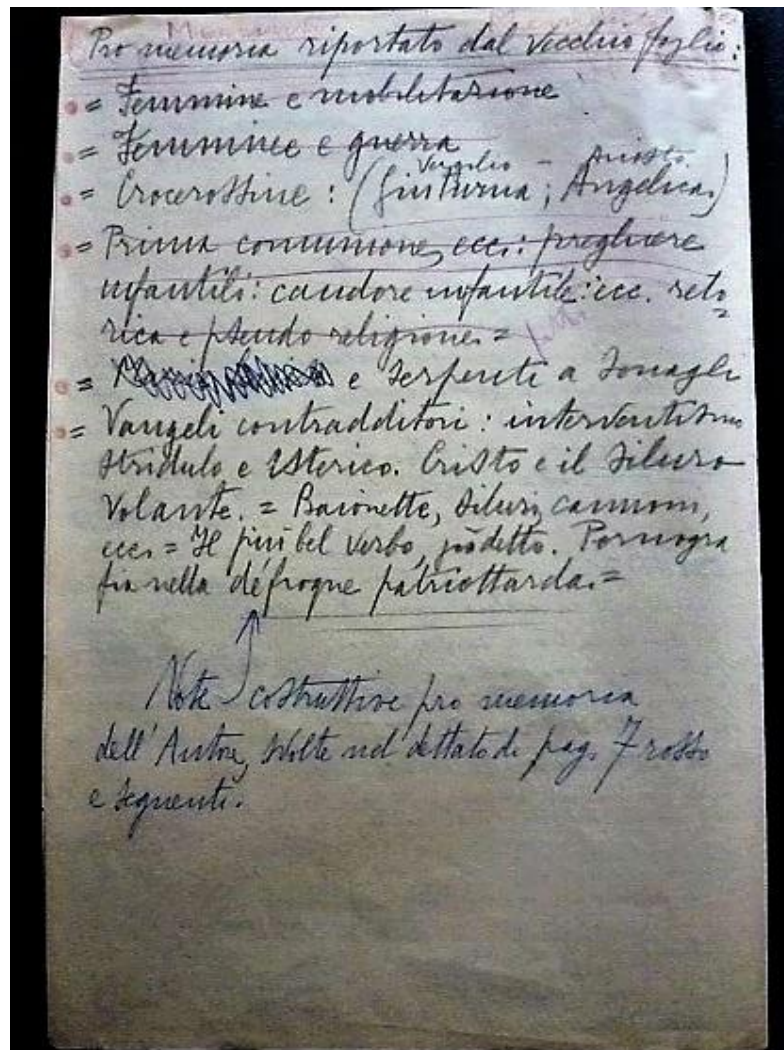 Pro memoria riportato dal vecchio foglio:
= Femmine e mobilitazione
= Femmine e guerra
Vergilio - Ariosto
= Crocerossine: (Giuturna; Angelica)
= Prima comunione, ecc.: preghiere
infantili: candore infantile: ecc. reto=
rica e pseudo religione. =
= e serpente a sonagli
= Vangeli contradditori: interventismo
stridulo e isterico. Cristo e il siluro
volante. = Baionette, siluri, cannoni,
ecc. = Il più bel verbo, già detto. Pornogra
fia nella défroque patriottarda. =
Note costruttive pro memoria
dell'Autore, svolte nel dettato di pag. 7 rosso
e seguenti.